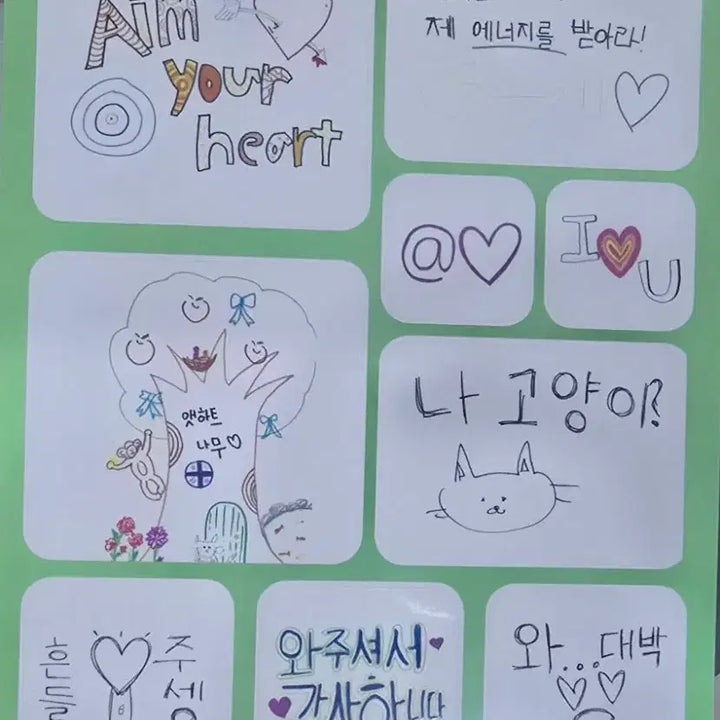 Aim
your
heart
제 에너지를 받아라!
@♡
I ♥ U
앳하트
나무♡
나 고양이?
하트
주
세
와주셔서
감사합니다
와...대박